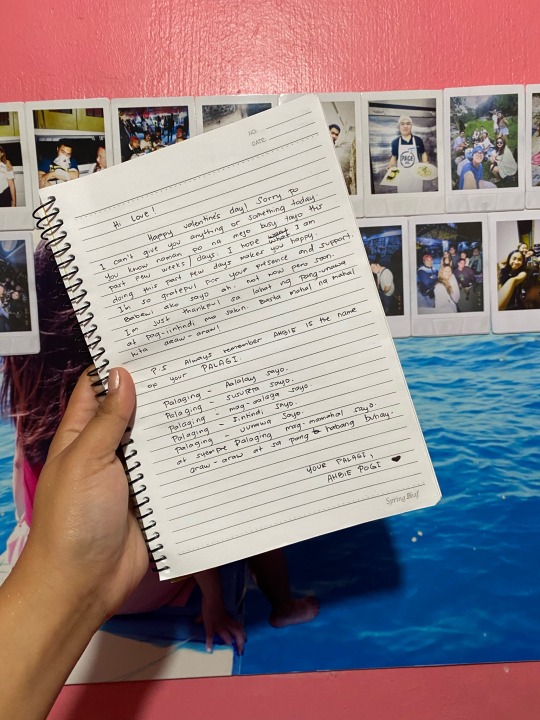 NO:
DATE:
Hi Love!
Happy valentine's day! Sorry po
I can't give you anything or something today
You know naman po na medjo busy tayo this
past few weeks/days I hope what I am
doing this past few days makes you happy.
I'm so grateful for your presence and support.
Babawi ako sayo ah, not now pero soon.
I'm just thankful sa lahat ng pang-unawa
at pag-iintindi mo sakin. Basta mahal na mahal
kita araw-araw!
P.S Always remember AHBIE is the name
of your PALAGI.
Palaging - Aalalay sayo.
Palaging - susuporta sayo.
Palaging - mag-aalaga sayo.
Palaging - iintindi sayo.
Palaging - uunawa sayo.
at syempre Palaging mag-mamahal sayo.
araw-araw at sa pang habang buhay.
YOUR PALAGI,
AHBIE POGI
Spring Leaf
PAGE